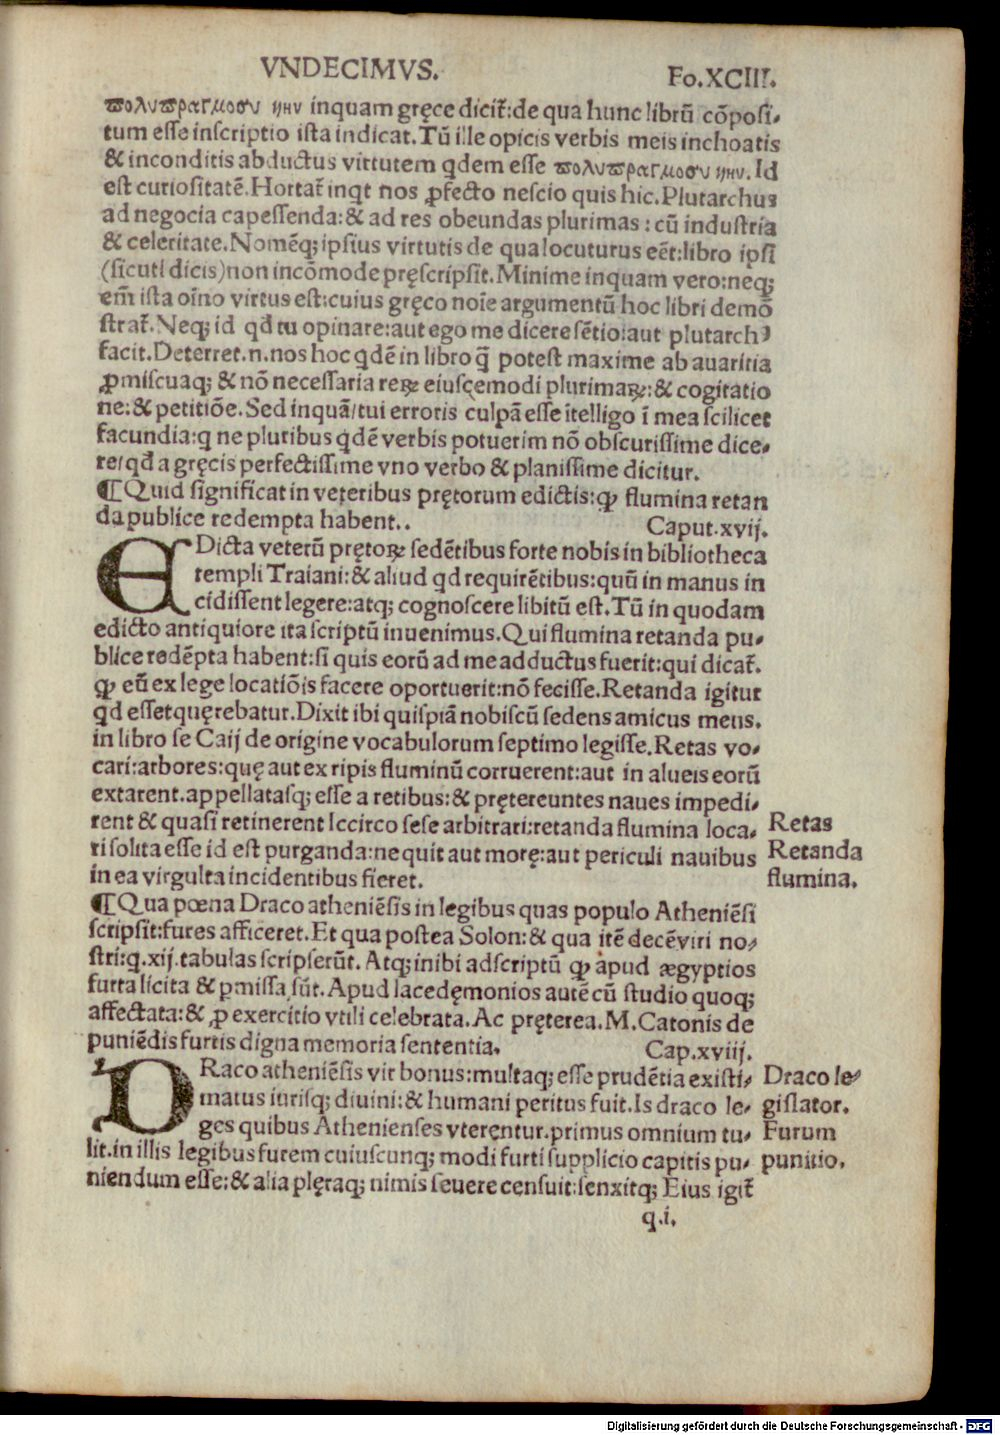 VNDECIMVS. Fo.XCIII.
πολυπραγμοσυ ηην inquam gręce dicit᷑:de qua hunc librū cōposi-
tum esse inscriptio ista indicat.Tū ille opicis verbis meis inchoatis
& inconditis abductus virtutem qdem esse πολυπραγμοσυ ηην. Id
est curiositatē.Hortat᷑ inqt nos ꝓfecto nescio quis hic.Plutarchus
ad negocia capessenda:& ad res obeundas plurimas : cū industria
& celeritate.Nomēq; ipsius virtutis de qua locuturus eēt:libro ipsi
(sicuti dicis)non incōmode pręscripsit.Minime inquam vero:neq;
em̄ ista oīno virtus est:cuius gręco noīe argumentū hoc libri demō
strat᷑.Neq; id qđ tu opinare:aut ego me dicere sētio:aut plutarchꝰ
facit.Deterret.n.nos hoc qdē in libro q̄ potest maxime ab auaritia
ꝓmiscuaq; & nō necessaria reꝝ eiuscemodi plurimaꝝ:& cogitatio
ne:& petitiōe.Sed inquā/tui erroris culpā esse ītelligo ī mea scilicet
facundia:q ne pluribus qdē verbis potuerim nō obscurissime dice-
re/qđ a gręcis perfectissime vno verbo & planissime dicitur.
¶Quid significat in veteribus prętorum edictis:ꝙ flumina retan
da publice redempta habent.. Caput.xvij.
EDicta veterū prętoꝝ sedētibus forte nobis in bibliotheca
templi Traiani:& aliud qd requirētibus:quū in manus in
cidissent legere:atq; cognoscere libitū est.Tū in quodam
edicto antiquiore ita scriptū inuenimus.Qui flumina retanda pu-
blice redēpta habent:si quis eorū ad me adductus fuerit:qui dicat᷑.
ꝙ eū ex lege locatiōis facere oportuerit:nō fecisse.Retanda igitur
qd esset quęrebatur.Dixit ibi quispiā nobiscū sedens amicus meus.
in libro se Caij de origine vocabulorum septimo legisse.Retas vo-
cari:arbores:quę aut ex ripis fluminū corruerent:aut in alueis eorū
extarent.appellatasq; esse a retibus:& prętereuntes naues impedi-
rent & quasi retinerent Iccirco sese arbitrari:retanda flumina loca-
ri solita esse id est purganda:ne quit aut morę:aut periculi nauibus
in ea virgulta incidentibus fieret.
Retas
Retanda
flumina.
¶Qua pœna Draco atheniēsis in legibus quas populo Atheniēsi
scripsit:fures afficeret.Et qua postea Solon:& qua itē decēviri no-
stri:q.xij.tabulas scripserūt. Atq; inibi adscriptū ꝙ apud ægyptios
furta licita & pmissa sūt.Apud lacedęmonios autē cū studio quoq;
affectata:& ꝓ exercitio vtili celebrata.Ac pręterea.M.Catonis de
puniēdis furtis digna memoria sententia. Cap.xviij.
DRaco atheniēsis vir bonus:multaq; esse prudētia existi-
matus iurisq; diuini:& humani peritus fuit.Is draco le-
ges quibus Athenienses vterentur.primus omnium tu-
lit.in illis legibus furem cuiuscunq; modi furti supplicio capitis pu-
niendum esse:& alia plęraq; nimis seuere censuit:senxitq; Eius igit᷑
Draco le-
gislator.
Furum
punitio.
q.i.
Digitalisierung gefördert durch die Deutsche Forschungsgemeinschaft - DFG